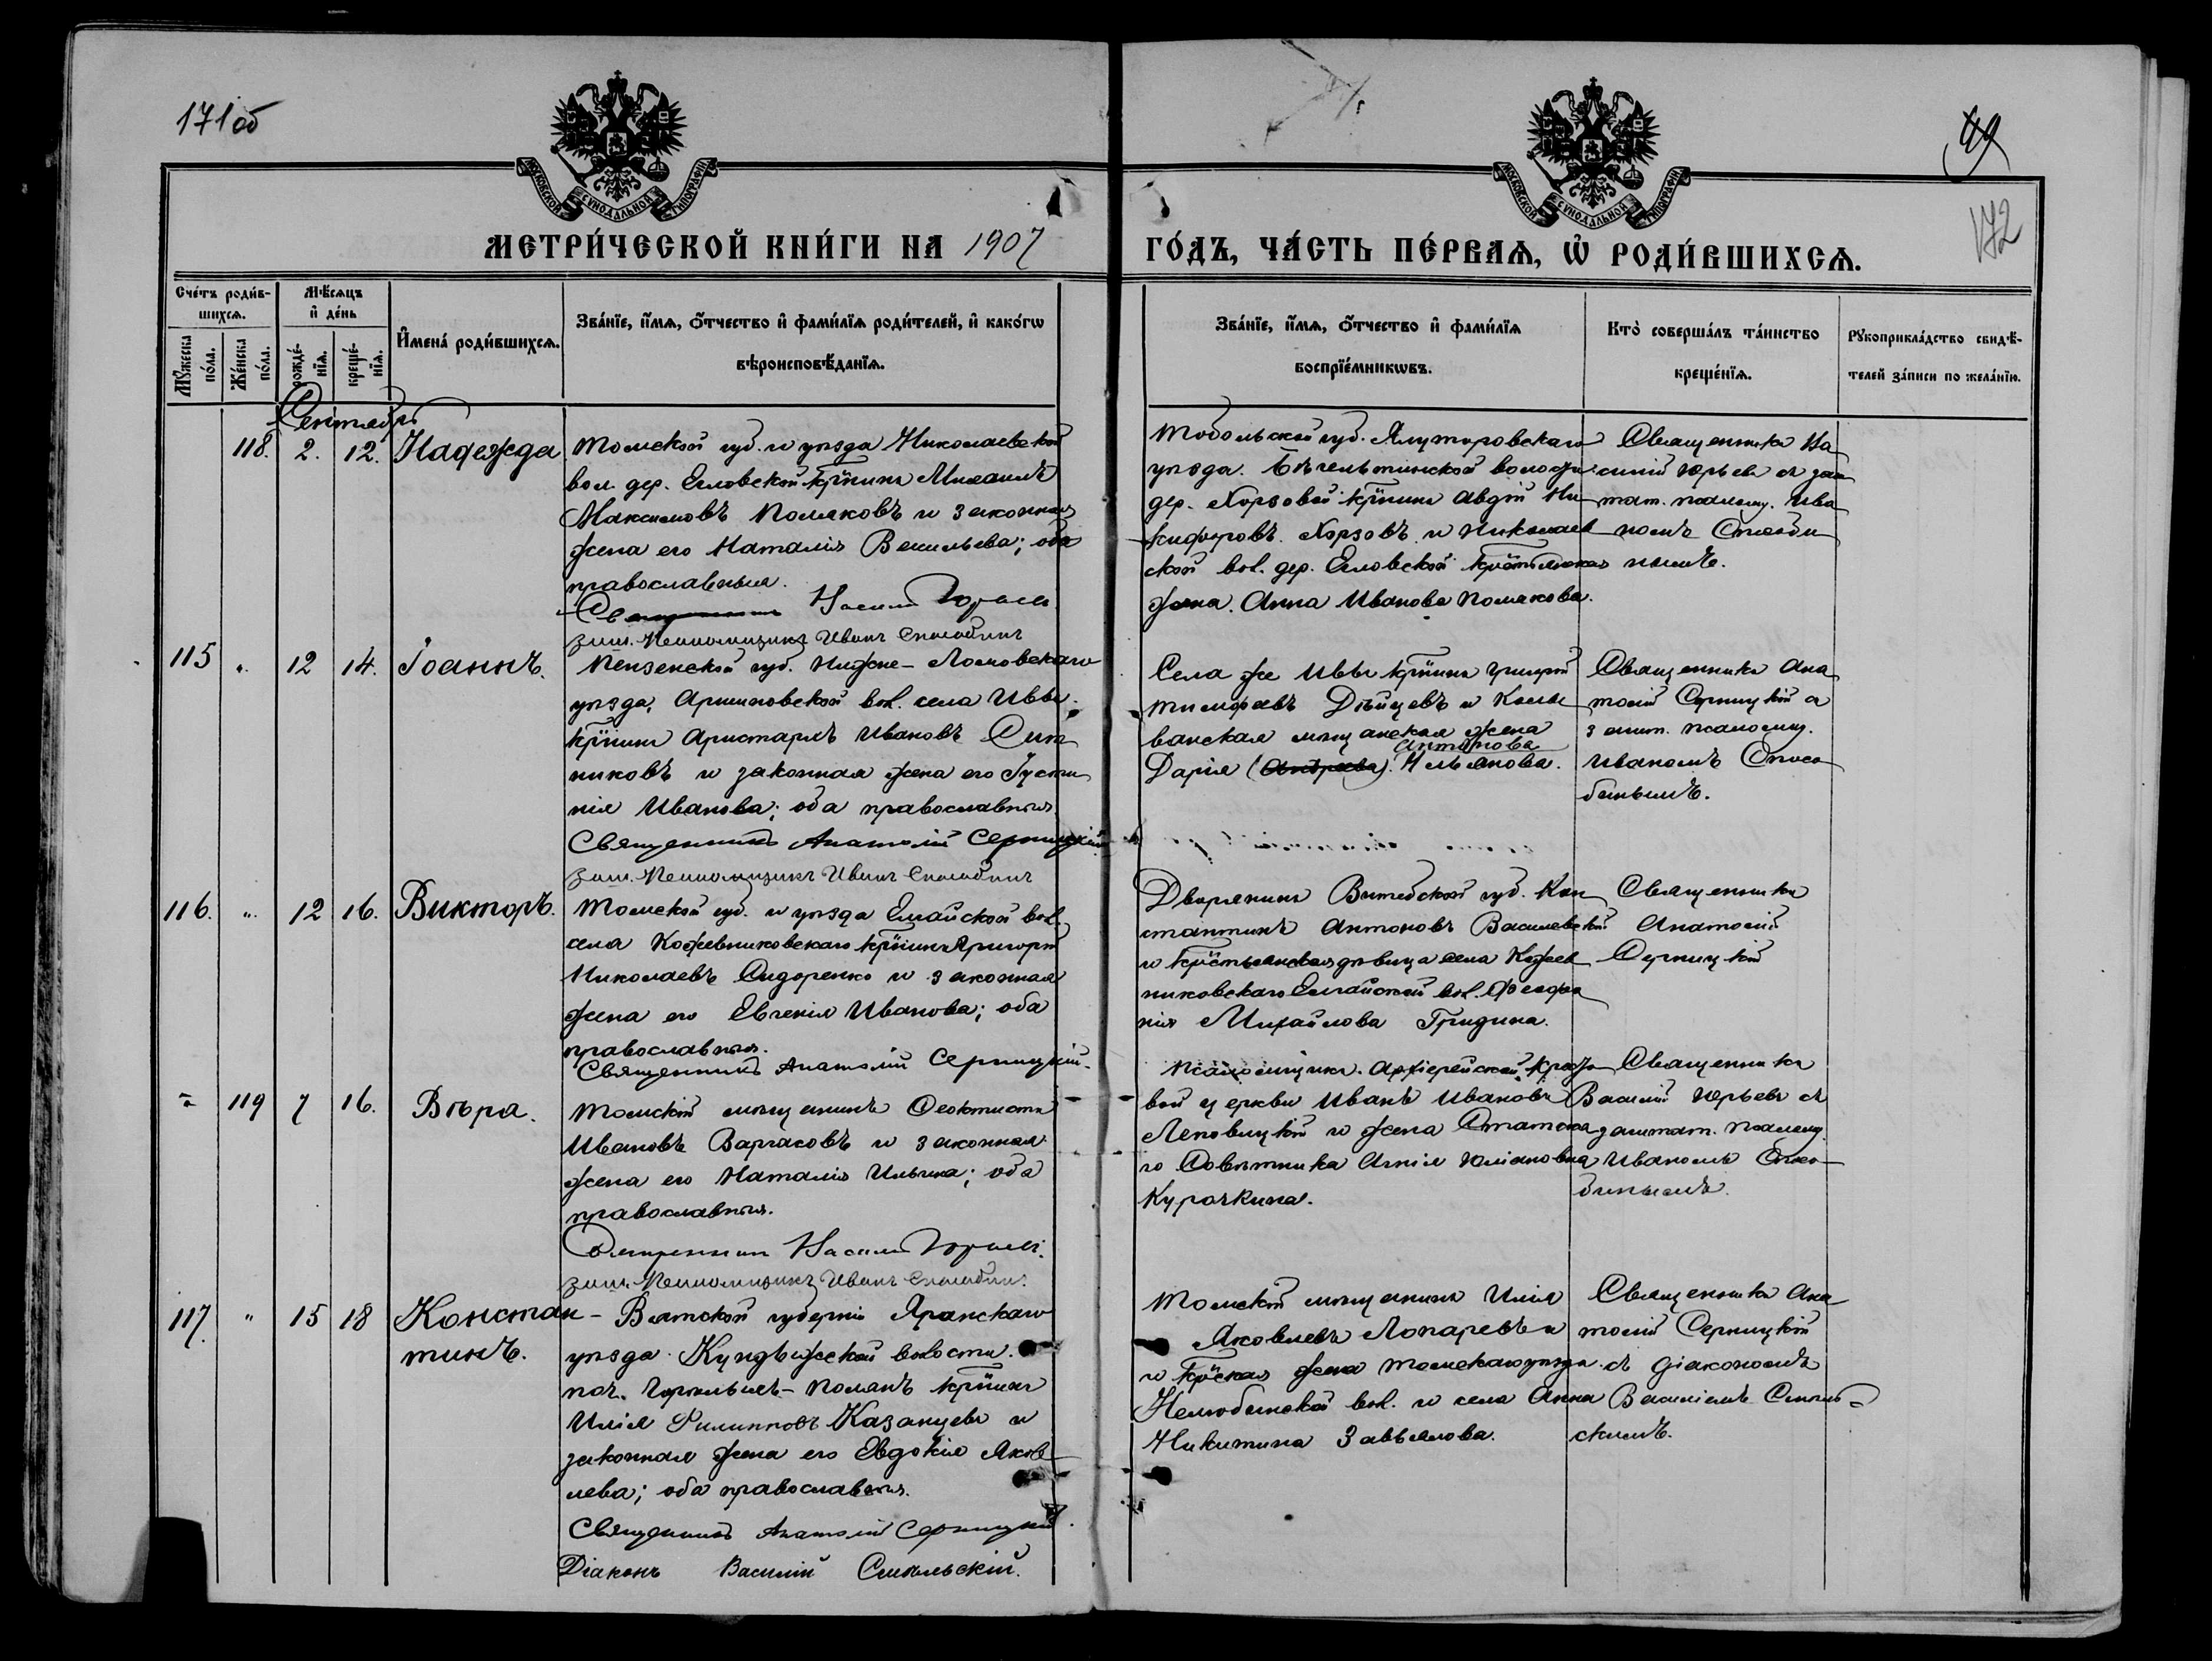 171об
49
172
МОСКОВСКОЙ СѴНОДАЛЬНОЙ ТИПОГРАФІИ
МОСКОВСКОЙ СѴНОДАЛЬНОЙ ТИПОГРАФІИ
МЕТРИ́ЧЕСКОЙ КНИ́ГИ НА 1907
ГО́ДЪ, ЧА́СТЬ ПЕ́РВАѦ, Ѡ҆ РОДИ́ВШИХСѦ.
Сче́тъ роди́в-
шихсѧ.
Мѹ́жеска по́ла.
Же́нска по́ла.
Мѣ́сѧцъ
и҆ де́нь
рожде́-
нїѧ.
креще́-
нїѧ.
И҆мена̀ роди́вшихсѧ.
Зва́нїе, и҆́мѧ, ѻ҆́тчество и҆ фами́лїѧ роди́телей, и҆ како́гѡ
вѣроисповѣ́данїѧ.
Зва́нїе, и҆́мѧ, ѻ҆́тчество и҆ фами́лїѧ
воспрїе́мникѡвъ.
Кто̀ соверша́лъ та́инство
креще́нїѧ.
Рѹкоприкла́дство свидѣ́-
телей за́писи по жела́нїю.
Сентябрь
118. 2. 12. Надежда
Томской губ. и уѣзда Николаевской
вол. дер. Еловской крнинъ Михаилъ
Максимовъ Поляковъ и законная
жена его Наталія Васильева; оба
православные.
Священникъ Василій Юрьевъ
зашт. Псаломщикъ Иванъ Способинъ
Тобольской губ. Ялуторовскаго
уѣзда. волости
дер. Хорзовой крнинъ Авдій Ни
кифоровъ Хорзовъ и Николаев
ской вол. дер. Еловской крестьянская
жена Анна Иванова Полякова.
Священникъ Ва
силій Юрьевъ съ заш
тат. псаломщ. Ива
номъ Способи
нымъ.
115 " 12 14. Іоаннъ.
Пензенской губ. Нижне-Ломовскаго
уѣзда, Аршиновской вол. села Ивы
крнинъ Аристархъ Ивановъ Сит
никовъ и законная жена его Іусти
нія Иванова; оба православные
Священникъ Анатолій Серницкій
зашт. Псаломщикъ Иванъ Способинъ
Села же Ивы крнинъ Григорій
Тимофеевъ и Колы
ванская мѣщанская жена
Антонова
Дарія (Андреева). Мельянова.
Священникъ Ана
толій Серницкій съ
зашт. псаломщ.
Иваномъ Спосо
бинымъ.
116. " 12 16. Викторъ.
Томской губ. и уѣзда Елгайской вол.
села Кожевниковскаго крнинъ Григорій
Николаевъ Сидоренко и законная
жена его Евгенія Иванова; оба
православные.
Священникъ Анатолій Серницкій.
Дворянинъ Витебской губ. Кон
стантинъ Антоновъ Василевскій
и крестьянская дѣвица села Кожев
никовскаго Елгайской вол. Феофа
нія Михайлова Гридина.
Священникъ
Анатолій
Серницкій
" 119 7 16. Вѣра.
Томскій мѣщанинъ Феоктистъ
Ивановъ Варгасовъ и законная
жена его Наталія Ильина; оба
православные.
Священникъ Василій Юрьевъ.
зашт. Псаломщикъ Иванъ Способинъ.
Псаломщикъ Архіерейской Кресто
вой церкви Иванъ Ивановъ
Леповицкій и жена Статска
го Совѣтника Агнія Юліановна
Курочкина.
Священникъ
Василій Юрьевъ съ
заштат. псаломщ.
Иваномъ Спосо
бинымъ.
117. " 15 18 Констан
тинъ.
Вятской губерніи Яранскаго
уѣзда Кундыжской волости.
поч. Поланъ крнинъ
Илія Филипповъ Казанцевъ и
законная жена его Евдокія Яков
лева; оба православные.
Священникъ Анатолій Серницкій.
Діаконъ Василій Смѣльскій.
Томскій мѣщанинъ Илія
Яковлевъ Лопаревъ и
и кр҃ская жена Томскаго уѣзда
Нелюбинской вол. и села Анна
Никитина Завьялова.
Священникъ Ана
толій Серницкій
съ діакономъ
Василіемъ Смѣль-
скимъ.